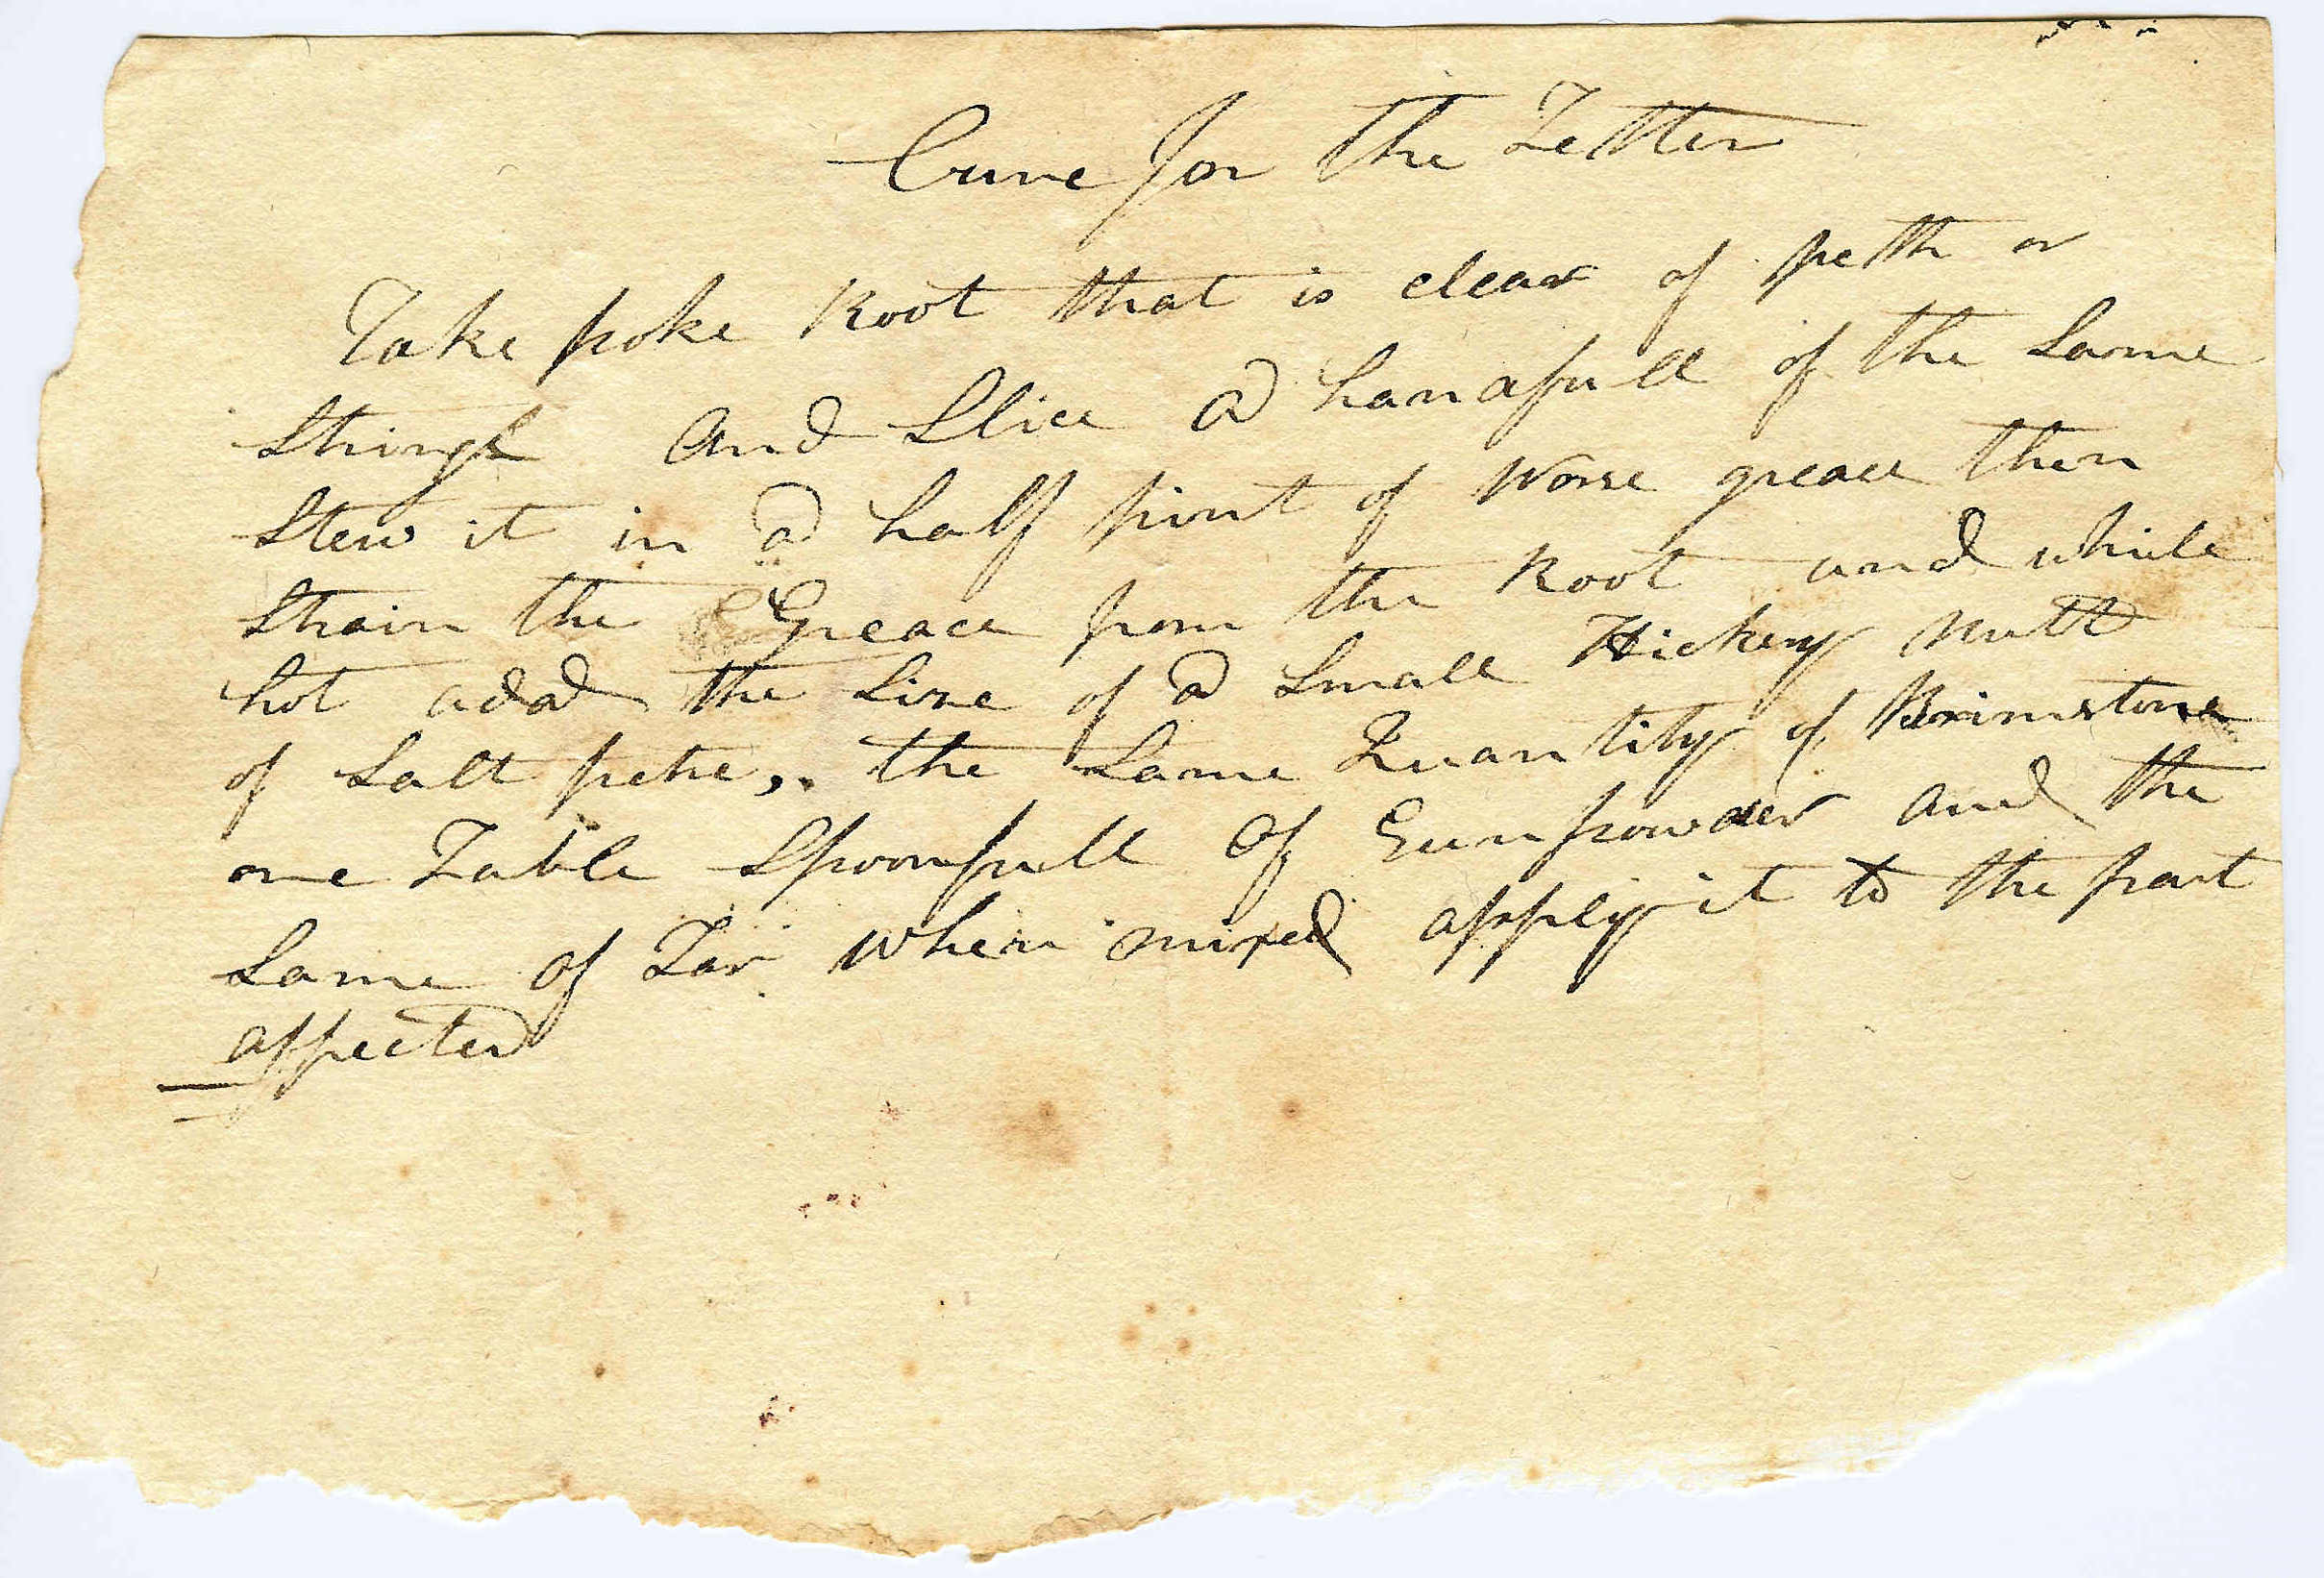 Cure for the Tetter
Take poke Root that is clear of peth or
Strings and Slice a handfull of the Same
Stew it in a half pint of worse greace then
Strain the Greace from the Root and while
hot add the Size of a Small Hickery nutt
of Salt petre, the Same Quantity of Brimstone
one Table Spoonfull of Gunpowder and the
Same of Tar when mixed apply it to the part
affected